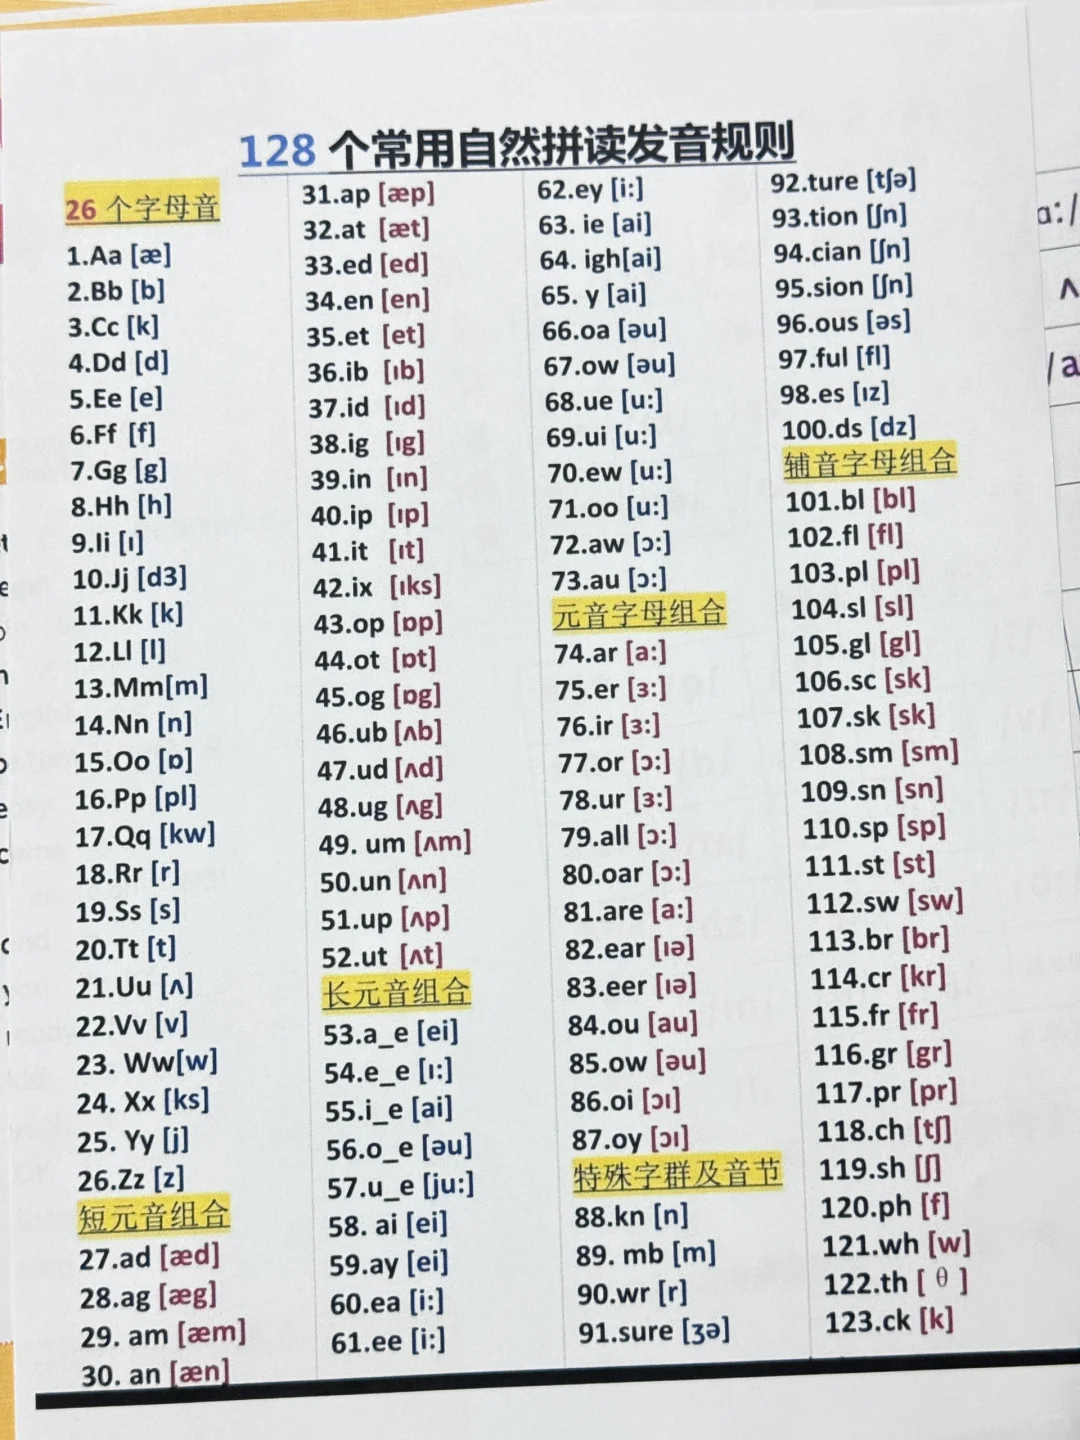 128 个常用自然拼读发音规则
26 个字母音
1.Aa [æ]
2.Bb [b]
3.Cc [k]
4.Dd [d]
5.Ee [e]
6.Ff [f]
7.Gg [g]
8.Hh [h]
9.Ii [ɪ]
10.Jj [d3]
11.Kk [k]
12.Ll [l]
13.Mm[m]
14.Nn [n]
15.Oo [ɒ]
16.Pp [pl]
17.Qq [kw]
18.Rr [r]
19.Ss [s]
20.Tt [t]
21.Uu [ʌ]
22.Vv [v]
23. Ww[w]
24. Xx [ks]
25. Yy [j]
26.Zz [z]
短元音组合
27.ad [æd]
28.ag [æg]
29. am [æm]
30. an [æn]
31.ap [æp]
32.at [æt]
33.ed [ed]
34.en [en]
35.et [et]
36.ib [ɪb]
37.id [ɪd]
38.ig [ɪg]
39.in [ɪn]
40.ip [ɪp]
41.it [ɪt]
42.ix [ɪks]
43.op [ɒp]
44.ot [ɒt]
45.og [ɒg]
46.ub [ʌb]
47.ud [ʌd]
48.ug [ʌg]
49. um [ʌm]
50.un [ʌn]
51.up [ʌp]
52.ut [ʌt]
长元音组合
53.a_e [ei]
54.e_e [ɪ:]
55.i_e [ai]
56.o_e [əu]
57.u_e [ju:]
58. ai [ei]
59.ay [ei]
60.ea [i:]
61.ee [i:]
62.ey [i:]
63. ie [ai]
64. igh[ai]
65. y [ai]
66.oa [əu]
67.ow [əu]
68.ue [u:]
69.ui [u:]
70.ew [u:]
71.oo [u:]
72.aw [ɔ:]
73.au [ɔ:]
元音字母组合
74.ar [a:]
75.er [ɜ:]
76.ir [ɜ:]
77.or [ɔ:]
78.ur [ɜ:]
79.all [ɔ:]
80.oar [ɔ:]
81.are [a:]
82.ear [ɪə]
83.eer [ɪə]
84.ou [au]
85.ow [əu]
86.oi [ɔɪ]
87.oy [ɔɪ]
特殊字群及音节
88.kn [n]
89. mb [m]
90.wr [r]
91.sure [ʒə]
92.ture [tʃə]
93.tion [ʃn]
94.cian [ʃn]
95.sion [ʃn]
96.ous [əs]
97.ful [fl]
98.es [ɪz]
100.ds [dz]
辅音字母组合
101.bl [bl]
102.fl [fl]
103.pl [pl]
104.sl [sl]
105.gl [gl]
106.sc [sk]
107.sk [sk]
108.sm [sm]
109.sn [sn]
110.sp [sp]
111.st [st]
112.sw [sw]
113.br [br]
114.cr [kr]
115.fr [fr]
116.gr [gr]
117.pr [pr]
118.ch [tʃ]
119.sh [ʃ]
120.ph [f]
121.wh [w]
122.th [ θ ]
123.ck [k]